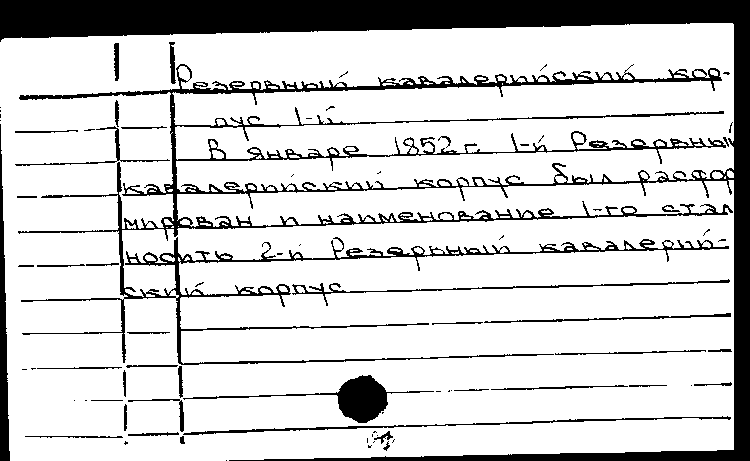 Резервный кавалерийский кор-
пус 1-й.
В январе 1852 г. 1-й Резервный
кавалерийский корпус был расфор
мирован и наименование 1-го стал
носить 2-й Резервный кавалерий-
ский корпус